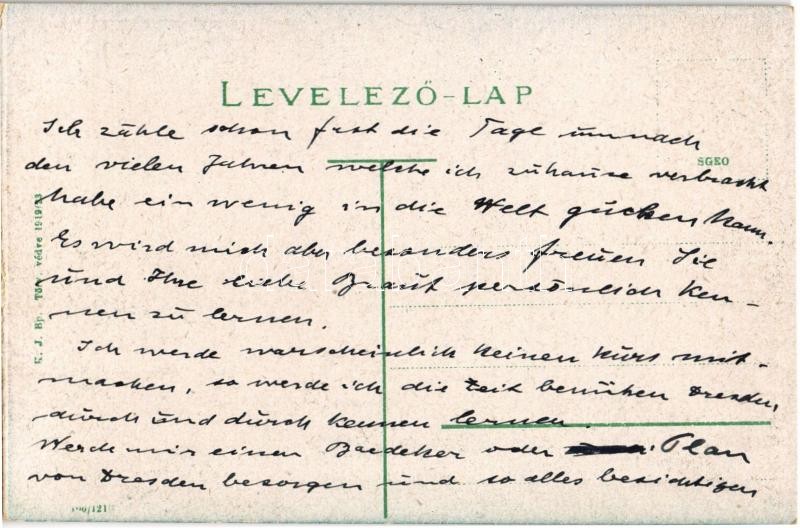 LEVELEZŐ-LAP
Ich zähle schon fast die Tage umnach
SGKO
den vielen Jahren welche ich zuhause verbracht
habe ein wenig in die Welt gucken kann.
Es wird mich aber besonders freuen Sie
und Ihre liebe Braut persönlich ken-
nen zu lernen.
Ich werde warscheinlich keinen Kurs mit-
machen, so werde ich die Zeit benützen Dresden
durch und durch kennen lernen.
Werde mir einen Baedeker oder Plan
von Dresden besorgen und so alles besichtigen
K. J. Bp. Törv. védve 1919/23